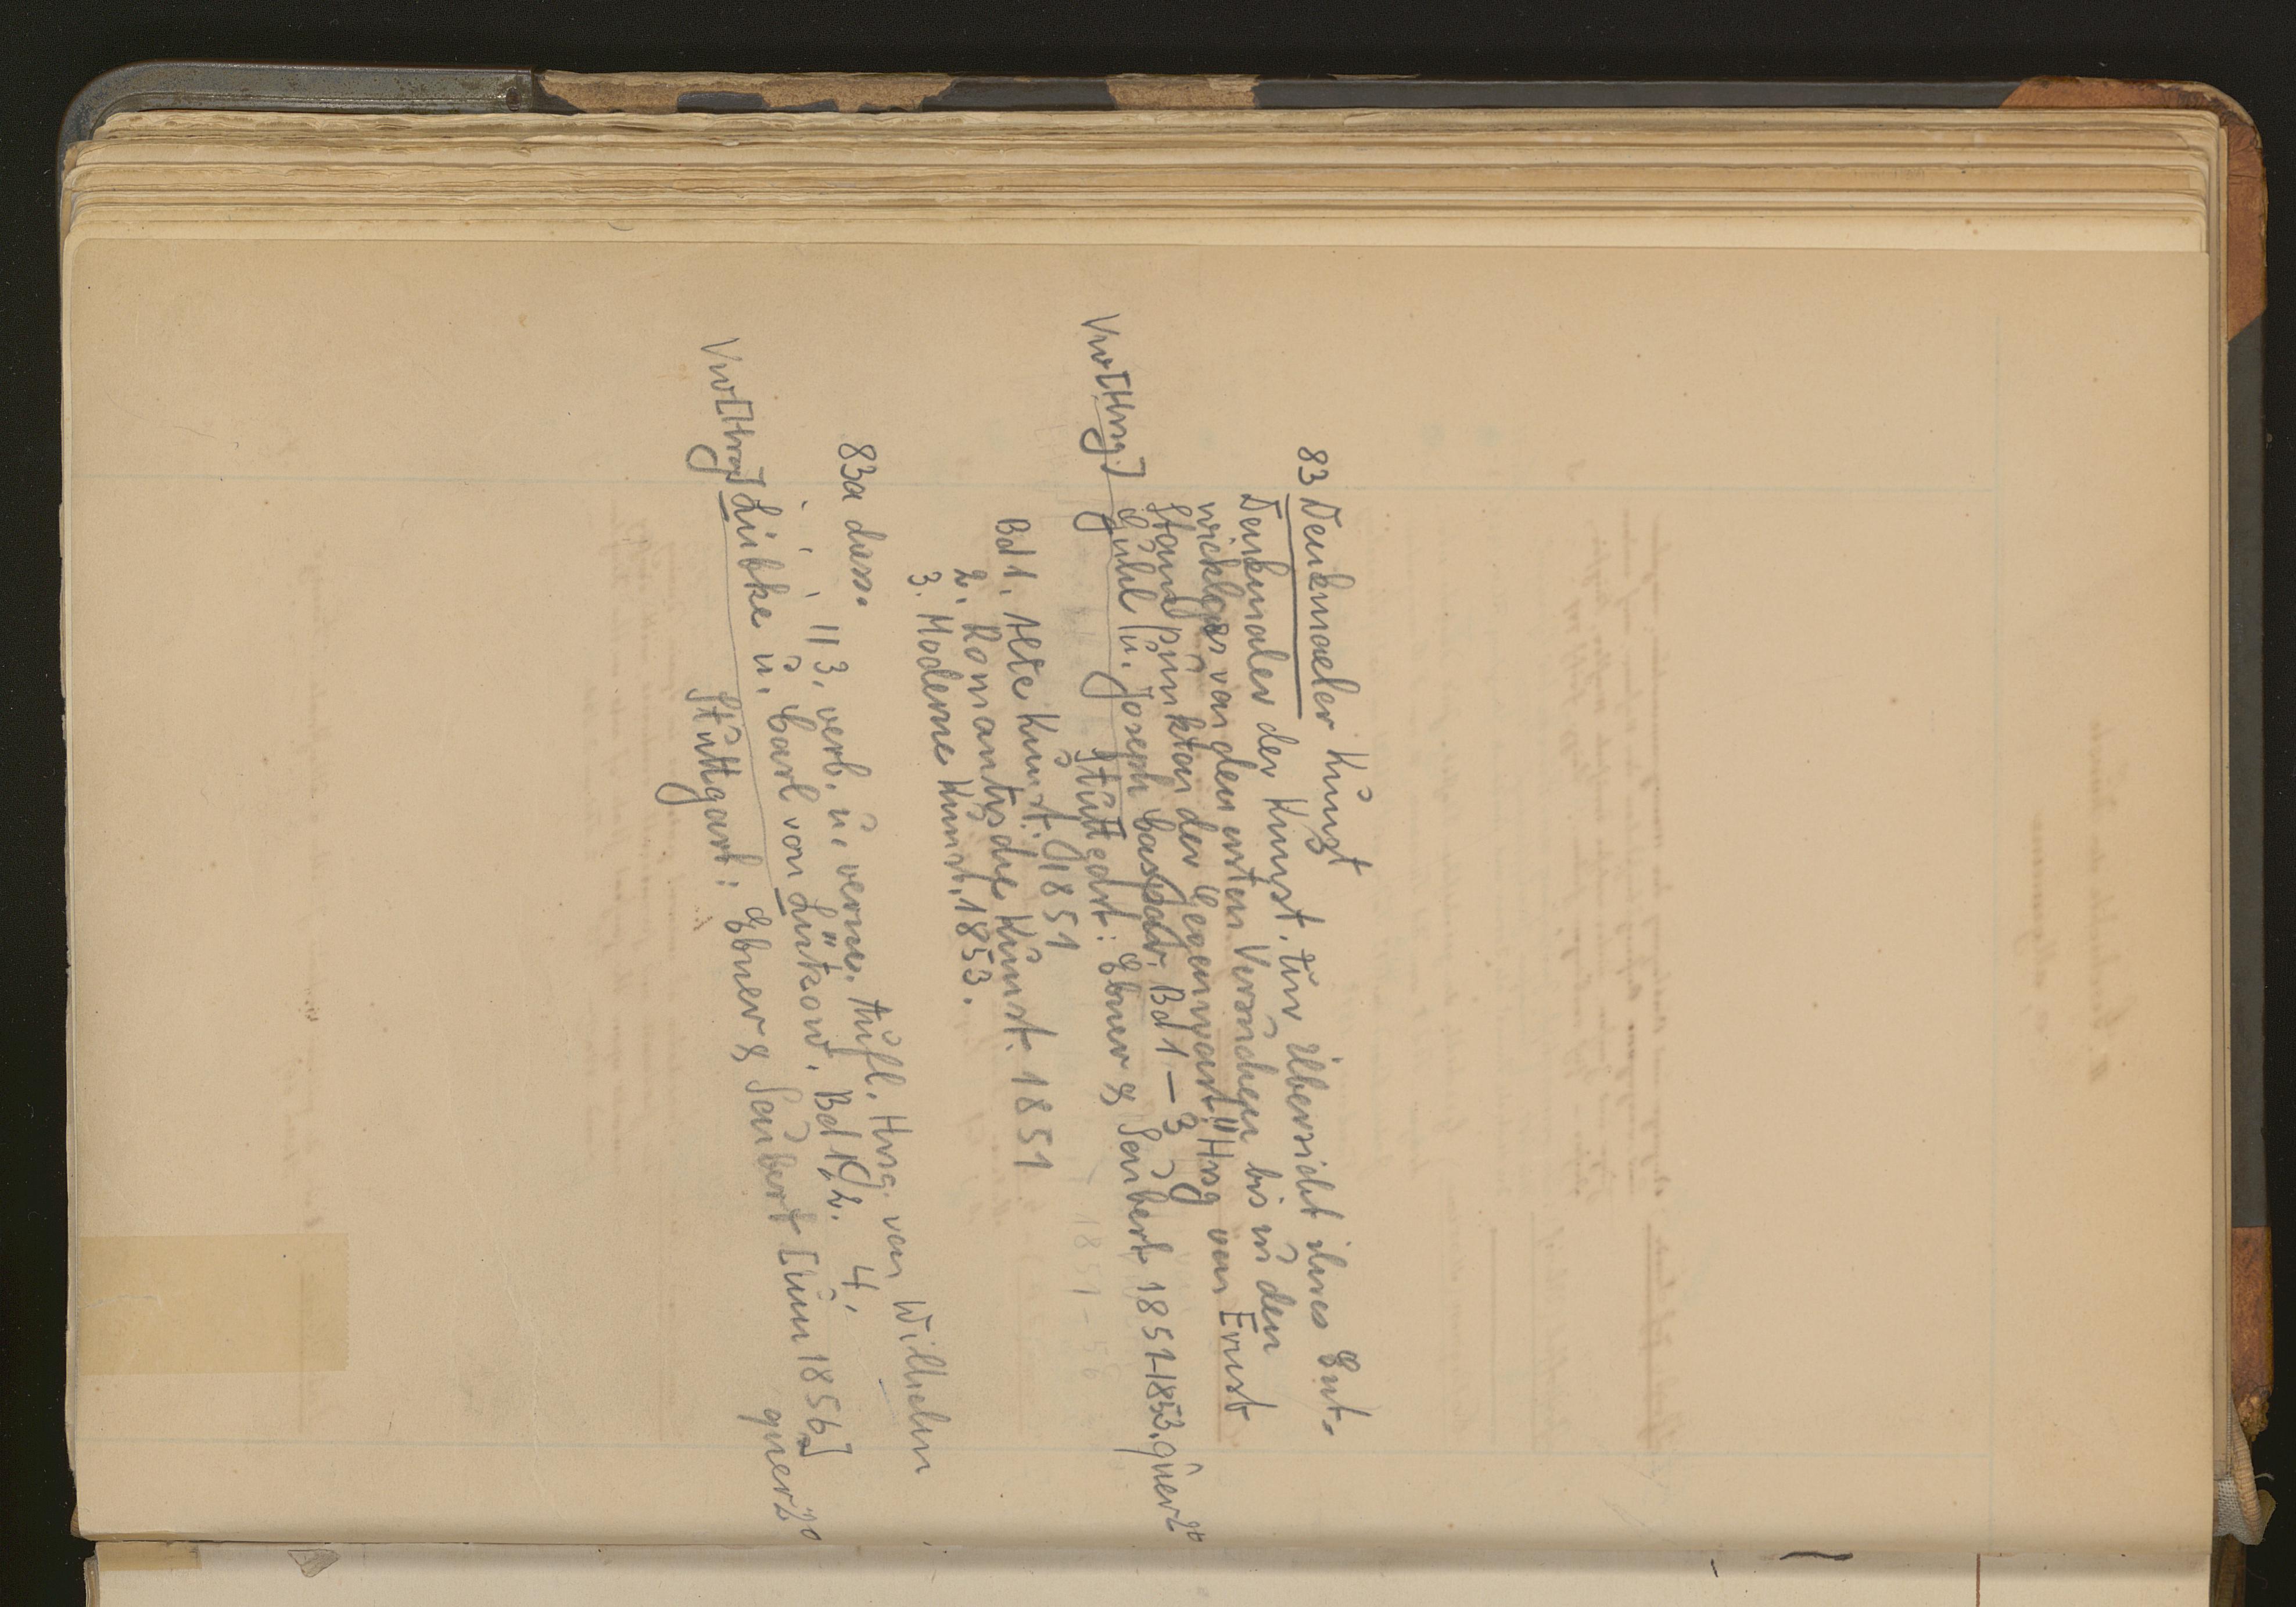 83 Denkmaeler Kunst
Denkmaler der Kunst, zur Übersicht ihres Ent-
wicklgs von den ersten Versuchen bis zu den
Standpunkten der Gegenwart. Hrsg von Ernst
Vw[Hrsg.] Guhl u. Joseph Caspar. Bd 1-3
Stuttgart: Ebner & Seubert 1851-1853. quer2°
1851-56
Bd 1. Alte Kunst. 1851
2. Romantische Kunst. 1851
3. Moderne Kunst, 1853.
83a dass.
" 3. verb. u. verm. Aufl. Hrsg. von Wilhelm
Vw[Hrsg] Lübke u. Carl von Lützow. Bd 1,2. 4.
Stuttgart: Ebner & Seubert [um 1856]
quer2°